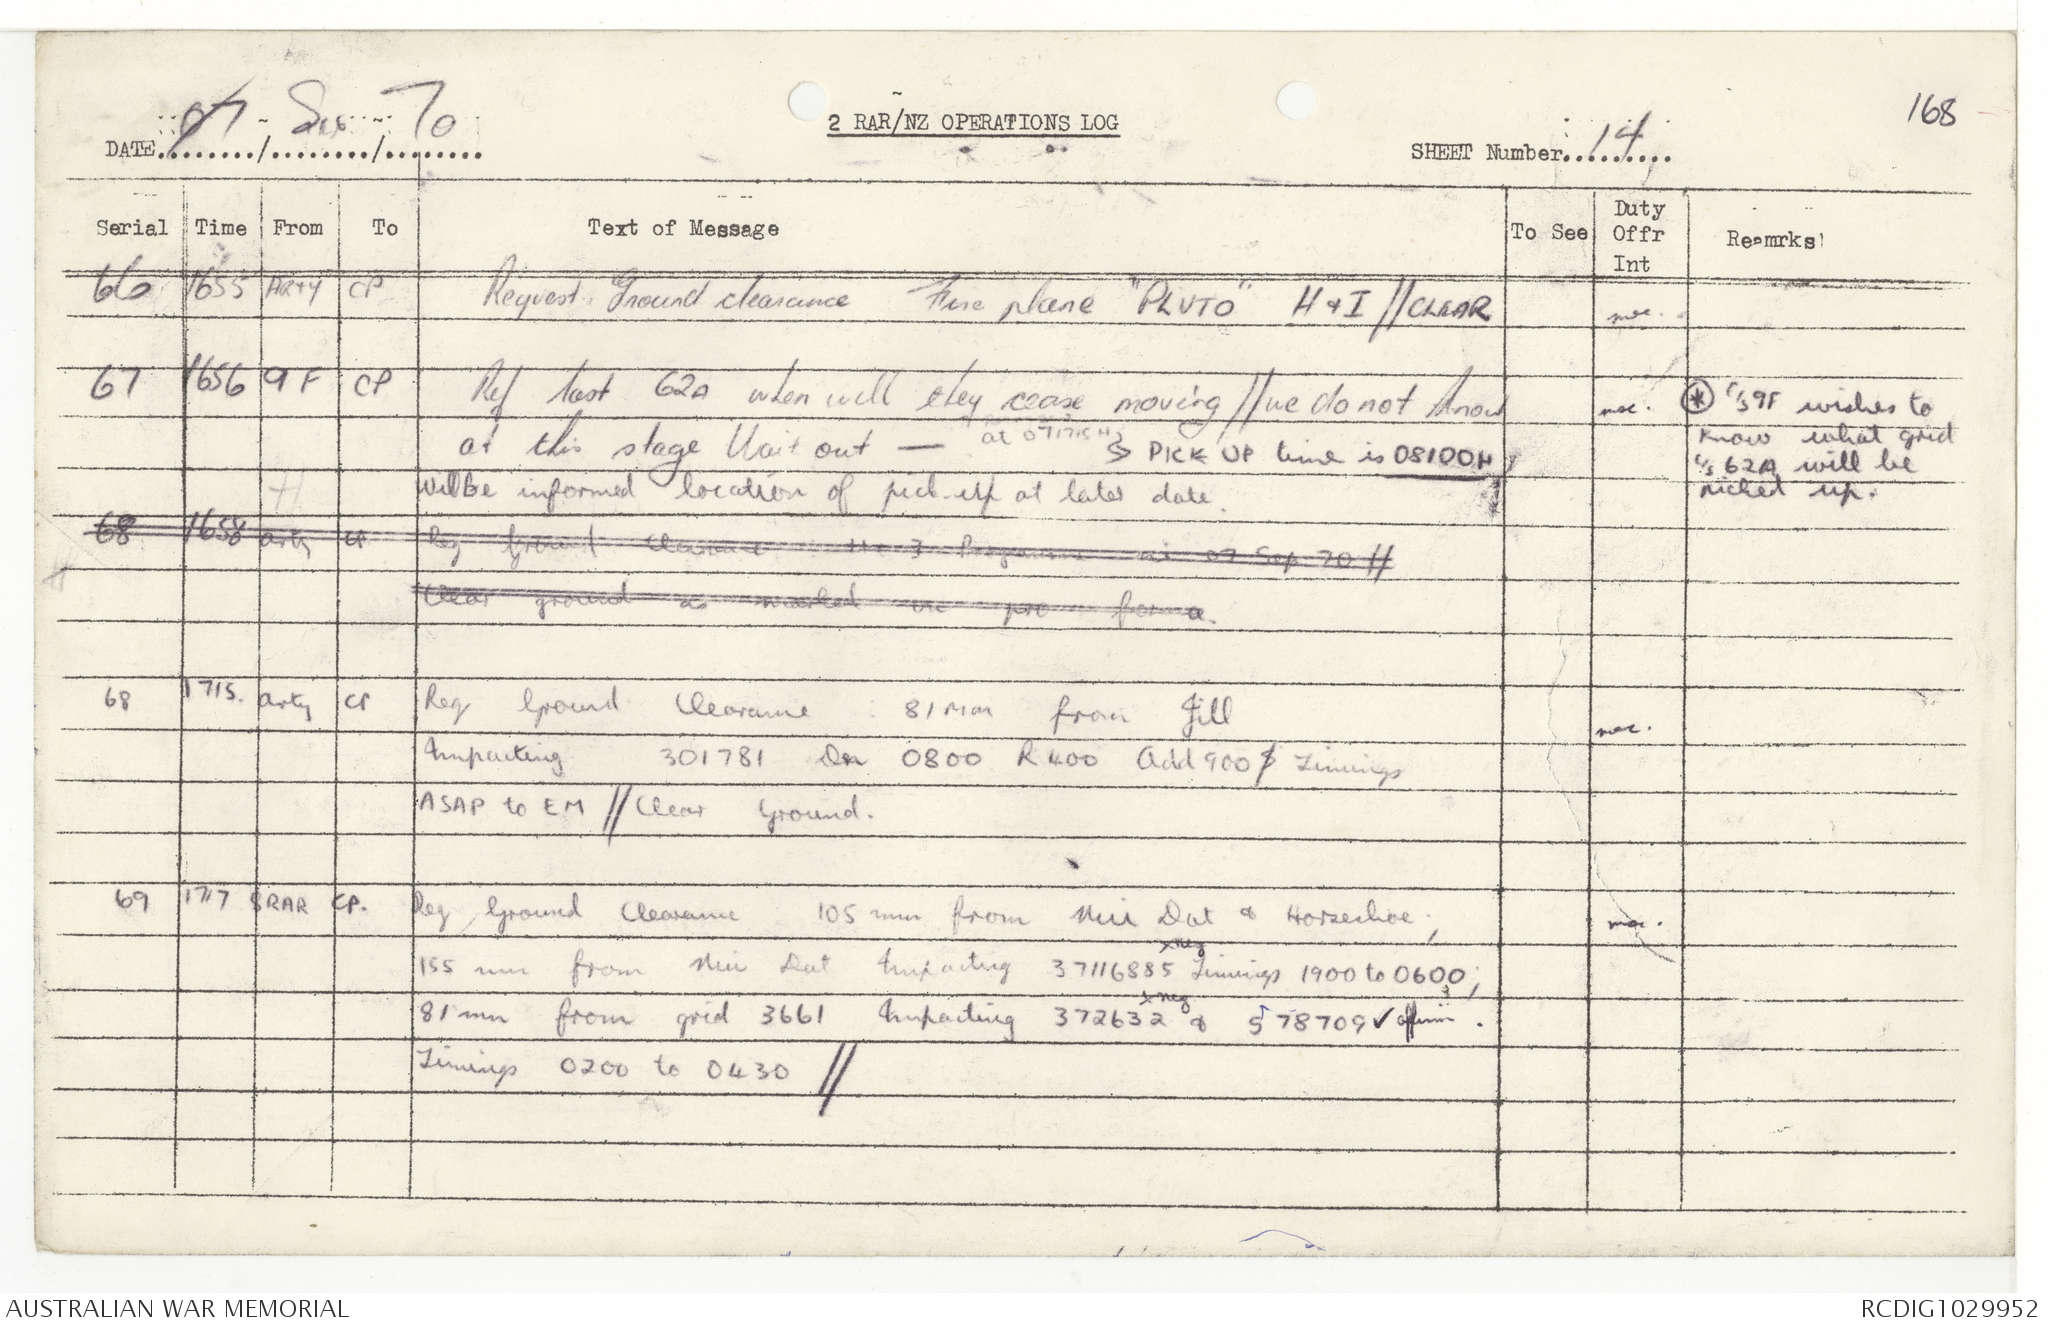 168
2 RAR/NZ OPERATIONS LOG
DATE 07 / Sep / 70
SHEET Number 14
Serial Time From To Text of Message To See Duty Offr Int Reamrks
66 1655 ARTY CP Request Ground clearance Fire plane "PLUTO" H & I // CLEAR
67 1656 9F CP Ref last 62A when will they cease moving // we do not know
at this stage Wait out — at 071715H PICK UP time is 08100H
will be informed location of pick-up at later date.
* C/S 9F wishes to
know what grid
C/S 62A will be
picked up.
68 1658 arty CP Req Ground Clearance H & I Programme 07 Sep 70 //
Clear ground as marked on pro forma.
68 1715. arty CP Req Ground Clearance 81 mm from Jill
Impacting 301781 Dn 0800 R 400 Add 900 Timings
ASAP to EM // Clear Ground.
69 1717 8RAR CP. Req Ground Clearance 105 mm from Nui Dat & Horseshoe;
155 mm from Nui Dat Impacting 37116885 x neg Timings 1900 to 0600;
81 mm from grid 3661 Impacting 372632 x neg & 578709 ✓ affirm.
Timings 0200 to 0430 //
AUSTRALIAN WAR MEMORIAL
RCDIG1029952